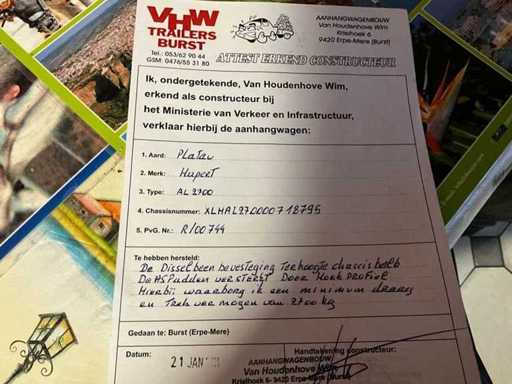 VHW
TRAILERS
BURST
Tel.: 053/62 90 44
GSM: 0476/55 31 80
AANHANGWAGENBOUW
Van Houdenhove Wim
Krishoek 6
9420 Erpe-Mere (Burst)
ATTEST ERKEND CONSTRUCTEUR
Ik, ondergetekende, Van Houdenhove Wim,
erkend als constructeur bij
het Ministerie van Verkeer en Infrastructuur,
verklaar hierbij de aanhangwagen:
1. Aard: Platau
2. Merk: Hapert
3. Type: AL 2700
4. Chassisnummer: XLHAL270000718795
5. PvG. Nr.: R/00744
Te hebben hersteld:
De Disselbeen bevestiging Terhoogte chassisbalk
Door Hoekprofiel
Hierbij waarborg ik een minimum draag
en Trek vermogen van 2700 kg
Gedaan te: Burst (Erpe-Mere)
Datum: 21 JAN
AANHANGWAGENBOUW
Van Houdenhove Wim
Krishoek 6-9420 Erpe-Mere (Burst)
Handtekening constructeur: